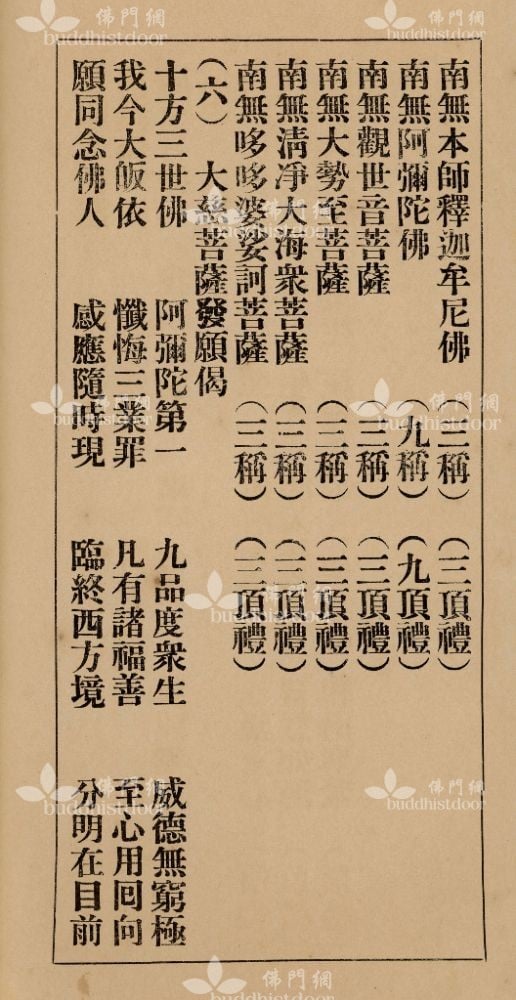 南無本師釋迦牟尼佛 (三稱) (三頂禮)
南無阿彌陀佛 (九稱) (九頂禮)
南無觀世音菩薩 (三稱) (三頂禮)
南無大勢至菩薩 (三稱) (三頂禮)
南無清凈大海衆菩薩 (三稱) (三頂禮)
南無哆哆婆娑訶菩薩 (三稱) (三頂禮)
(六) 大慈菩薩發願偈
十方三世佛 阿彌陀第一 九品度衆生 威德無窮極
我今大皈依 懺悔三業罪 凡有諸福善 至心用囘向
願同念佛人 感應隨時現 臨終西方境 分明在目前
佛門網
buddhistdoor